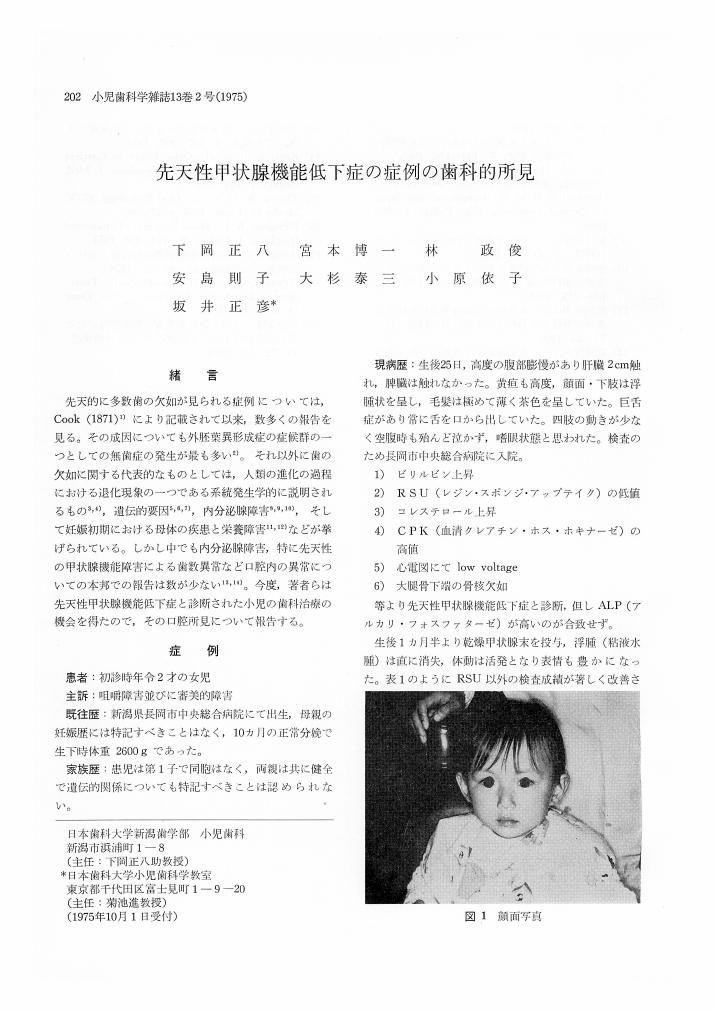 202 小児歯科学雑誌13巻2号(1975)
先天性甲状腺機能低下症の症例の歯科的所見
下岡正八 宮本博一 林 政俊
安島則子 大杉泰三 小原依子
坂井正彦*
緒言
先天的に多数歯の欠如が見られる症例については,
Cook (1871)¹⁾ により記載されて以来, 数多くの報告を
見る。その成因についても外胚葉異形成症の症候群の一
つとしての無歯症の発生が最も多い²⁾。それ以外に歯の
欠如に関する代表的なものとしては, 人類の進化の過程
における退化現象の一つである系統発生学的に説明され
るもの³,⁴⁾, 遺伝的要因⁵,⁶,⁷⁾, 内分泌腺障害⁸,⁹,¹⁰⁾, そし
て妊娠初期における母体の疾患と栄養障害¹¹,¹²⁾などが挙
げられている。しかし中でも内分泌腺障害, 特に先天性
の甲状腺機能障害による歯数異常など口腔内の異常につ
いての本邦での報告は数が少ない¹³,¹⁴⁾。今度, 著者らは
先天性甲状腺機能低下症と診断された小児の歯科治療の
機会を得たので, その口腔所見について報告する。
症例
患者：初診時年令2才の女児
主訴：咀嚼障害並びに審美的障害
既往歴：新潟県長岡市中央総合病院にて出生, 母親の
妊娠歴には特記すべきことはなく, 10ヵ月の正常分娩で
生下時体重 2600g であった。
家族歴：患児は第1子で同胞はなく, 両親は共に健全
で遺伝的関係についても特記すべきことは認められな
い。
日本歯科大学新潟歯学部 小児歯科
新潟市浜浦町1—8
(主任：下岡正八助教授)
*日本歯科大学小児歯科学教室
東京都千代田区富士見町1—9—20
(主任：菊池進教授)
(1975年10月1日受付)
現病歴：生後25日, 高度の腹部膨慢があり肝臓2cm触
れ, 脾臓は触れなかった。黄疸も高度, 顔面・下肢は浮
腫状を呈し, 毛髪は極めて薄く茶色を呈していた。巨舌
症があり常に舌を口から出していた。四肢の動きが少な
く空腹時も殆んど泣かず, 嗜眠状態と思われた。検査の
ため長岡市中央総合病院に入院。
1) ビリルビン上昇
2) RSU (レジン・スポンジ・アップテイク) の低値
3) コレステロール上昇
4) CPK (血清クレアチン・ホス・ホキナーゼ) の
高値
5) 心電図にて low voltage
6) 大腿骨下端の骨核欠如
等より先天性甲状腺機能低下症と診断, 但し ALP (ア
ルカリ・フォスファターゼ) が高いのが合致せず。
生後1ヵ月半より乾燥甲状腺末を投与, 浮腫 (粘液水
腫) は直に消失, 体動は活発となり表情も豊かになっ
た。表1のように RSU 以外の検査成績が著しく改善さ
図1 顔面写真